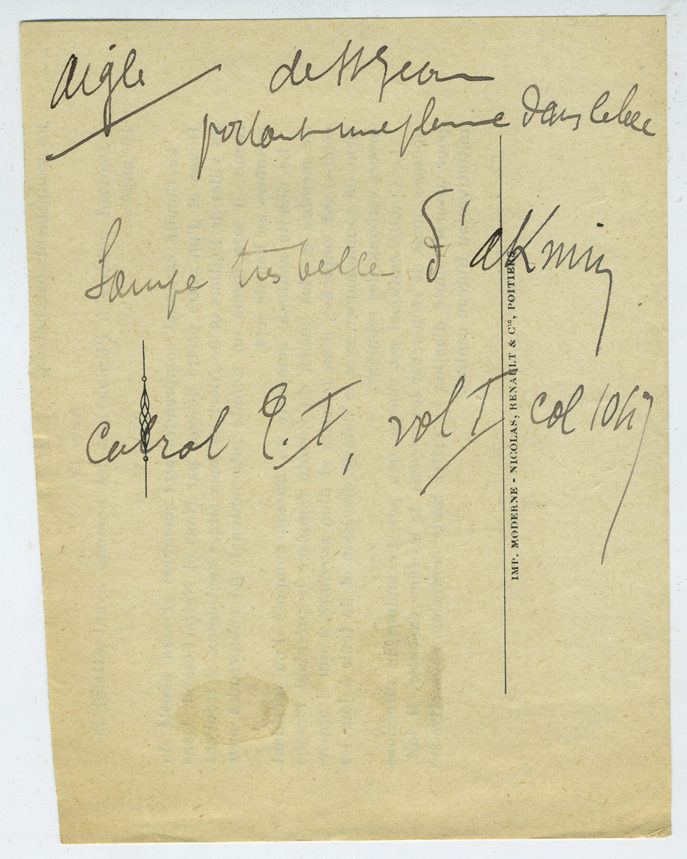 Aigle de St Jean
portant une plume dans le bec
Lampe tres belle d'akmin
Cabrol Q. I, vol I col 1047
IMP. MODERNE - NICOLAS, RENAULT & Cie, POITIERS